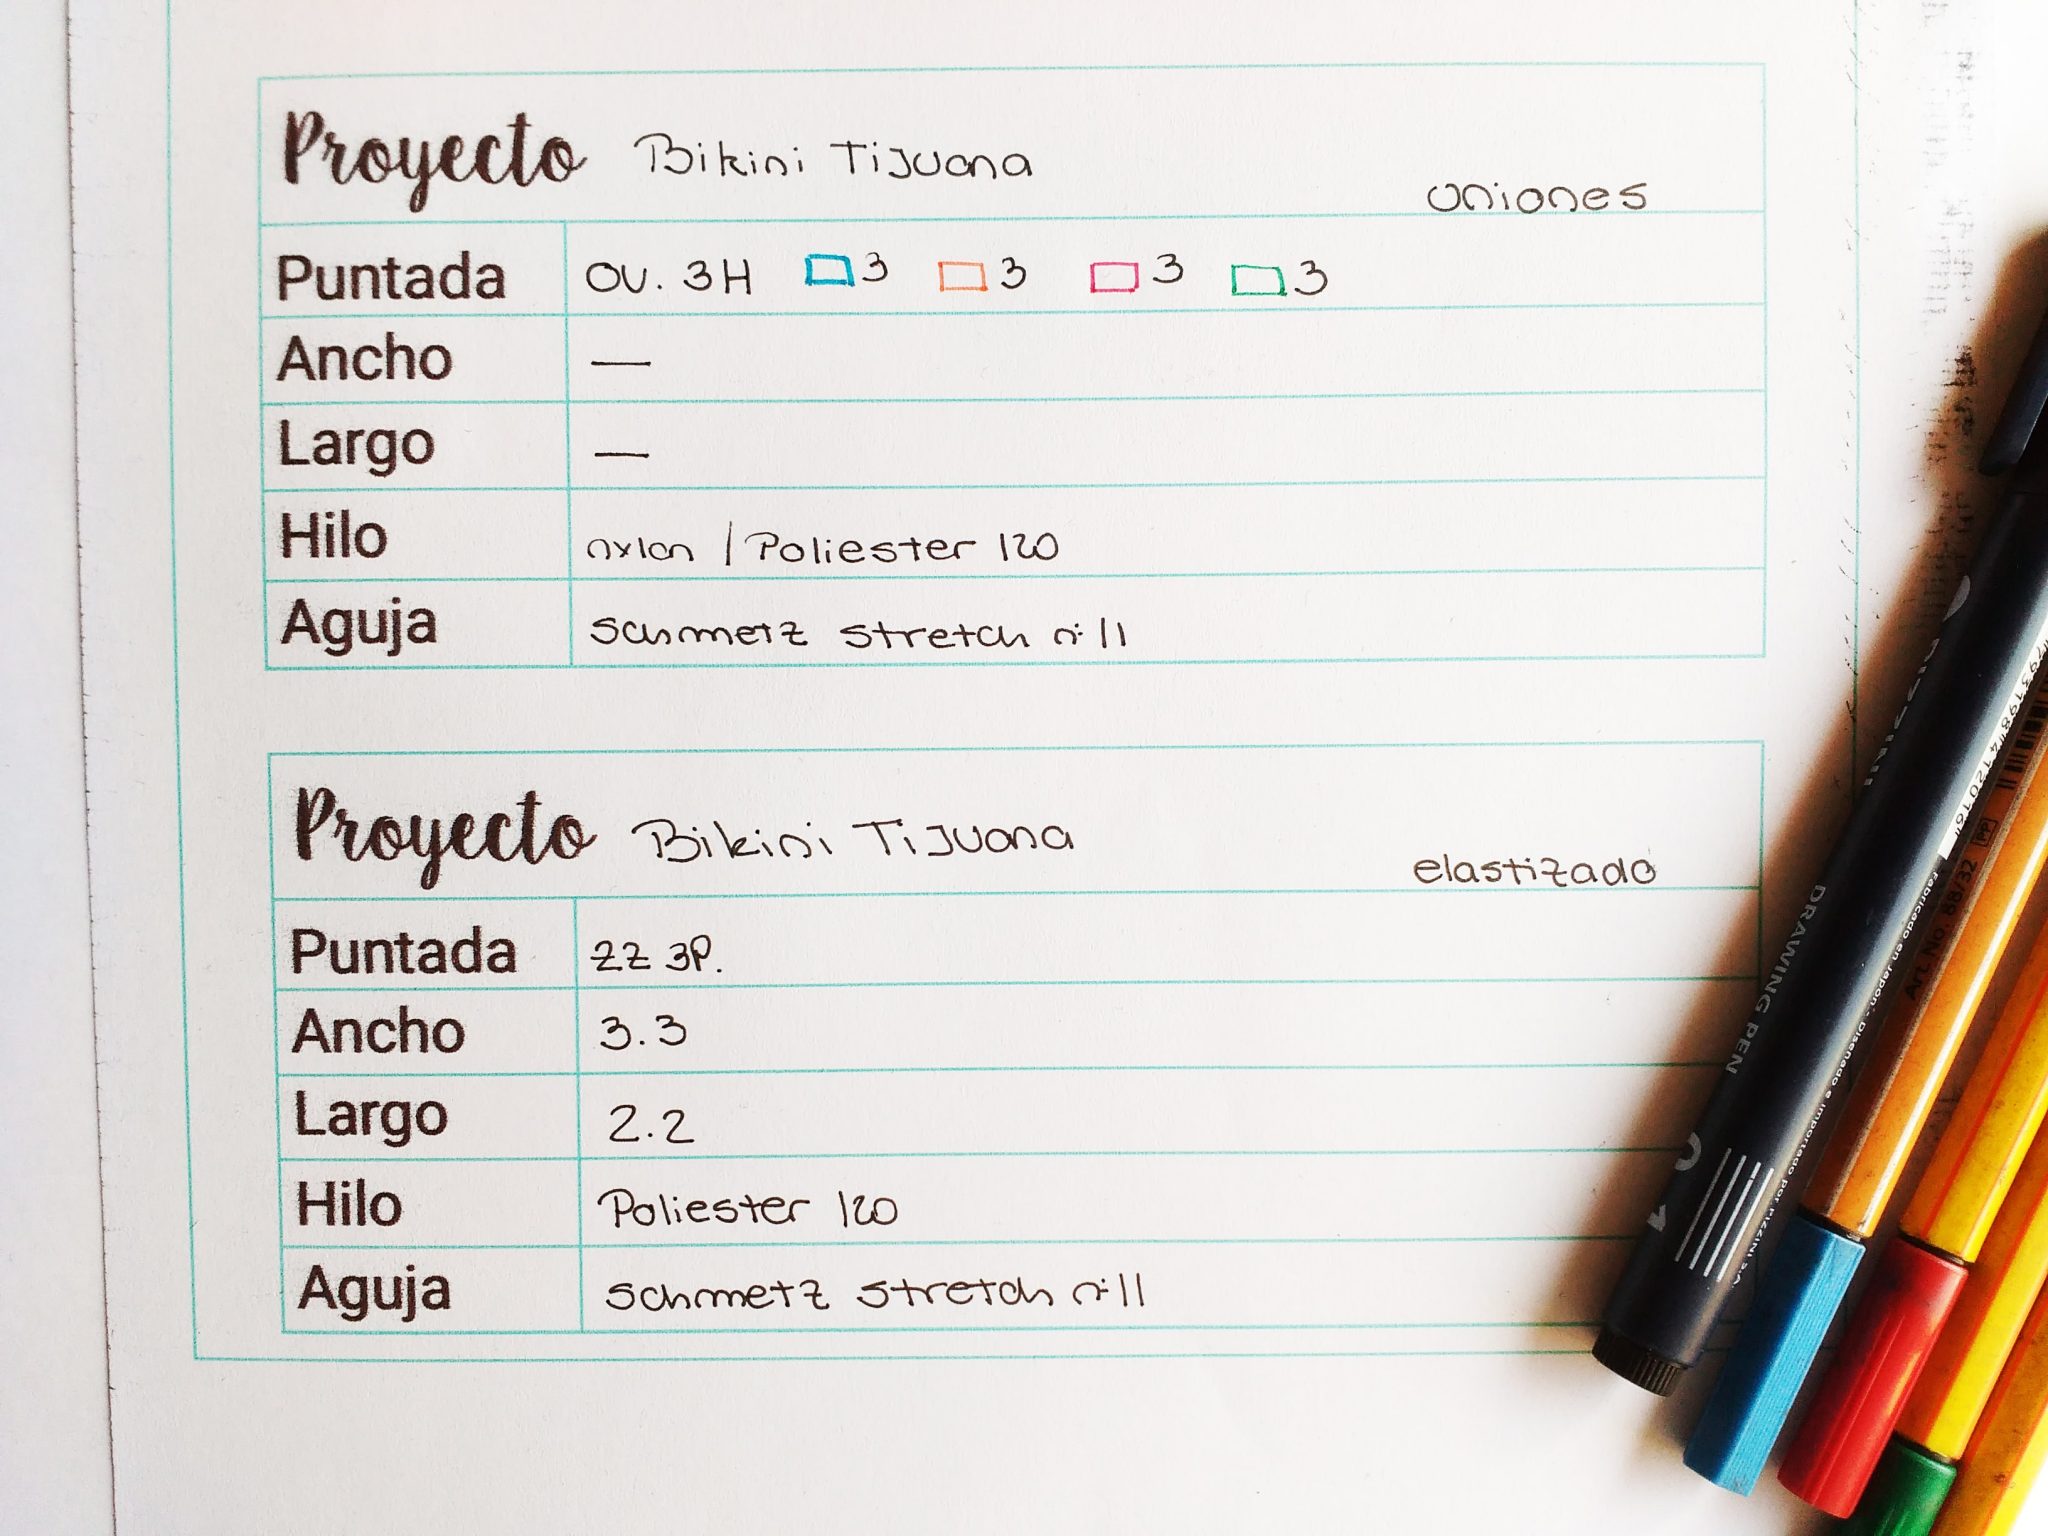 Proyecto Bikini Tijuana
uniones
Puntada OV. 3H 3 3 3 3
Ancho —
Largo —
Hilo nylon / Poliester 120
Aguja schmetz stretch n: 11
Proyecto Bikini Tijuana
elastizado
Puntada ZZ 3P.
Ancho 3.3
Largo 2.2
Hilo Poliester 120
Aguja schmetz stretch n: 11
DRAWING PEN
Fabricado en Japón - Diseñado e importado por
Art. No. 88/32 PP